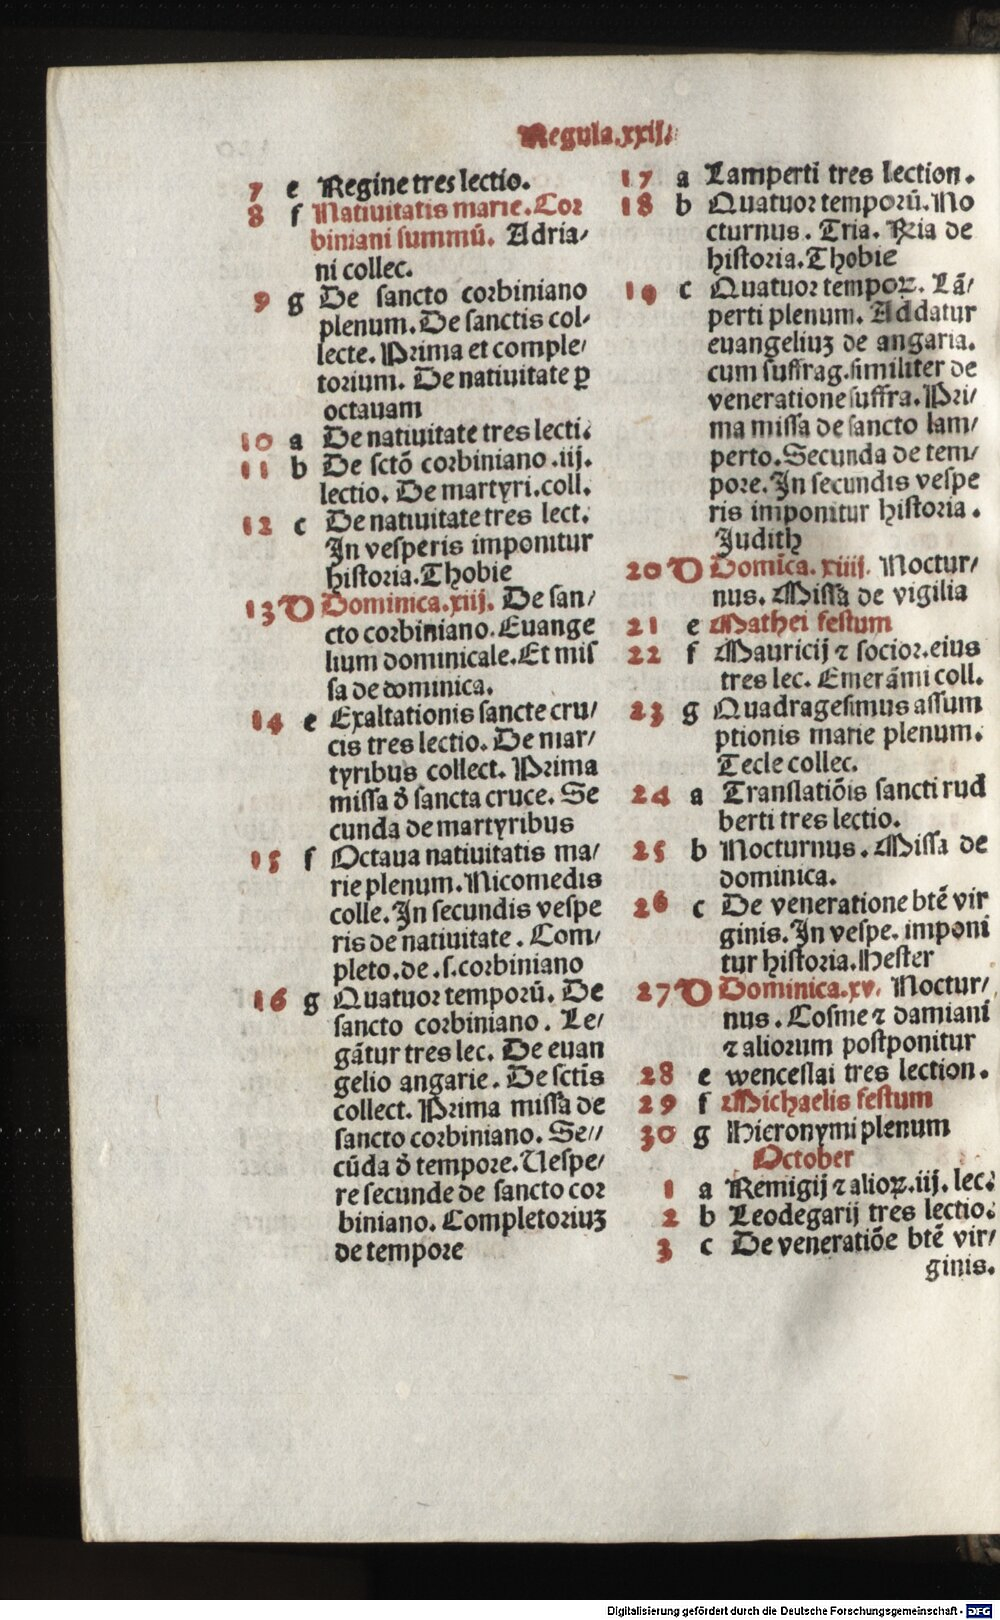 Regula.xxij.
7 e Regine tres lectio.
8 f Natiuitatis marie. Cor
biniani summū. Adria⸗
ni collec.
9 g De sancto corbiniano
plenum. De sanctis col⸗
lecte. Prima et comple⸗
torium. De natiuitate ꝑ
octauam
10 a De natiuitate tres lecti.
11 b De sctō corbiniano .iij.
lectio. De martyri.coll.
12 c De natiuitate tres lect.
In vesperis imponitur
historia. Thobie
13 D Dominica.xiij. De san⸗
cto corbiniano. Euange
lium dominicale. Et mis
sa de dominica.
14 e Exaltationis sancte cru⸗
cis tres lectio. De mar⸗
tyribus collect. Prima
missa ð sancta cruce. Se
cunda de martyribus
15 f Octaua natiuitatis ma⸗
rie plenum. Nicomedis
colle. In secundis vespe
ris de natiuitate. Com⸗
pleto.de.s.corbiniano
16 g Quatuor temporū. De
sancto corbiniano. Le⸗
gātur tres lec. De euan
gelio angarie. De sctīs
collect. Prima missa de
sancto corbiniano. Se⸗
cūda ð tempore. Uespe⸗
re secunde de sancto cor
biniano. Completoriuꝫ
de tempore
17 a Lamperti tres lection.
18 b Quatuor temporū. No
cturnus. Tria. Ria de
historia. Thobie
19 c Quatuor tempoꝝ. Lā⸗
perti plenum. Addatur
euangeliuꝫ de angaria.
cum suffrag.similiter de
veneratione suffra. Pri⸗
ma missa de sancto lam⸗
perto. Secunda de tem⸗
pore. In secundis vespe
ris imponitur historia.
Judith
20 D Domīca. xiiij. Noctur⸗
nus. Missa de vigilia
21 e Mathei festum
22 f Mauricij ⁊ socior.eius
tres lec. Emerāmi coll.
23 g Quadragesimus assum
ptionis marie plenum.
Tecle collec.
24 a Translatiōis sancti rud
berti tres lectio.
25 b Nocturnus. Missa de
dominica.
26 c De veneratione btē vir
ginis. In vespe. imponi
tur historia. Hester
27 D Dominica.xv. Noctur⸗
nus. Cosme ⁊ damiani
⁊ aliorum postponitur
28 e wenceslai tres lection.
29 f Michaelis festum
30 g Hieronymi plenum
October
1 a Remigij ⁊ alioꝝ.iij. lec.
2 b Leodegarij tres lectio.
3 c De veneratiōe btē vir⸗
ginis.
Digitalisierung gefördert durch die Deutsche Forschungsgemeinschaft - DFG